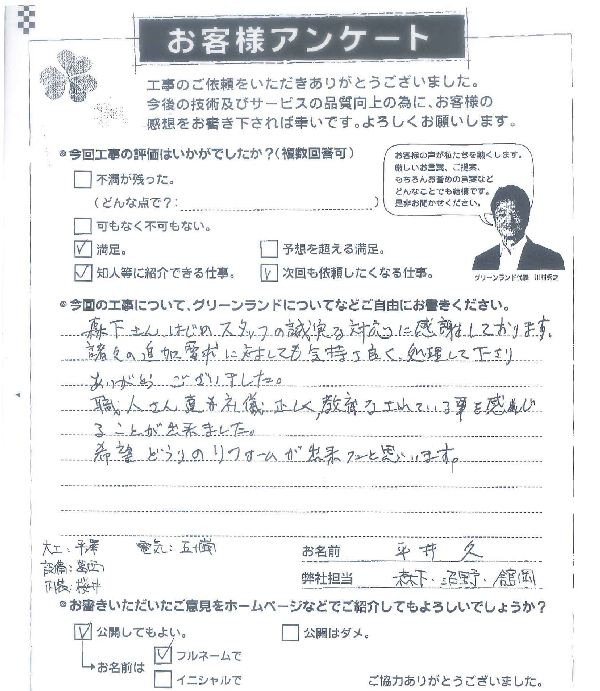 お客様アンケート
工事のご依頼をいただきありがとうございました。
今後の技術及びサービスの品質向上の為に、お客様の
感想をお書き下されば幸いです。よろしくお願いします。
今回工事の評価はいかがでしたか?(複数回答可)
お客様の声が私たちを動くします。
厳しいお言葉、ご提案、
もちろんお褒めの言葉など
どんなことでも結構です。
是非お聞かせください。
不満が残った。
(どんな点で?: )
可もなく不可もない。
満足。
予想を超える満足。
知人等に紹介できる仕事。
次回も依頼したくなる仕事。
グリーンランド代表
今回の工事について、グリーンランドについてなどご自由にお書きください。
森下さんはじめ、スタッフの誠実な対応に感謝しております。
諸々の追加要求に対しても気持ち良く、処理して下さり
ありがとうございました。
職人さん 礼儀正しく、教育されている事を感じ
ることが出来ました。
希望どうりのリフォームが出来たと思います。
大工:平澤
電気:
設備:
内装:桜井
お名前 平井 久
弊社担当 森下・沼野・舘岡
お書きいただいたご意見をホームページなどでご紹介してもよろしいでしょうか?
公開してもよい。
公開はダメ。
お名前は
フルネームで
イニシャルで
ご協力ありがとうございました。